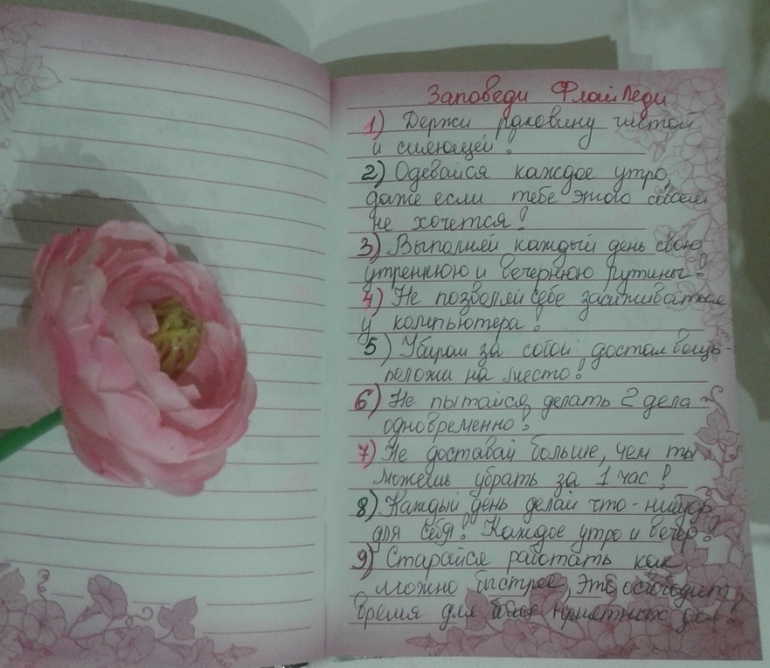 Заповеди Флай Леди
1) Держи раковину чистой
и сияющей!
2) Одевайся каждое утро,
даже если тебе этого совсем
не хочется!
3) Выполняй каждый день свою
утреннюю и вечернюю рутины!
4) Не позволяй себе засиживаться
у компьютера!
5) Убирай за собой: достал вещь-
положи на место!
6) Не пытайся делать 2 дела
одновременно!
7) Не доставай больше, чем ты
можешь убрать за 1 час!
8) Каждый день делай что-нибудь
для себя! Каждое утро и вечер!
9) Старайся работать как
можно быстрее, это освободит
время для более приятных дел!